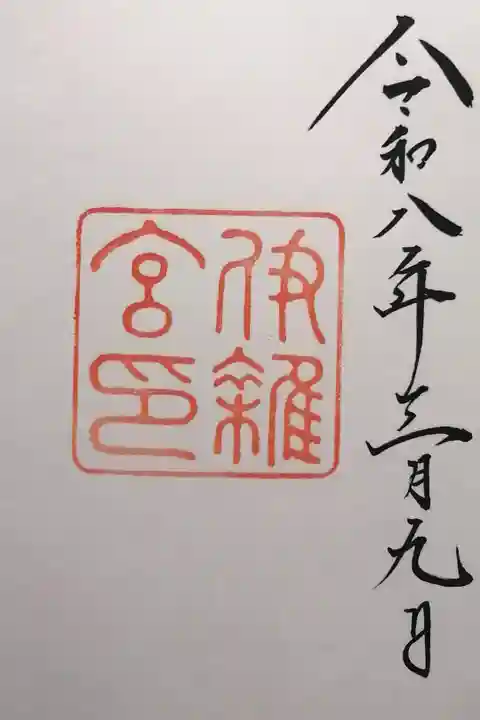 令和八年三月九日
伊雑
宮印